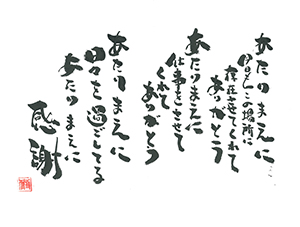 あたりまえに…
今日もこの場所に
存在させてくれて
ありがとう
あたりまえに
仕事をさせて
くれて
ありがとう
あたりまえに
日々を過ごしてる
あたりまえに
感謝